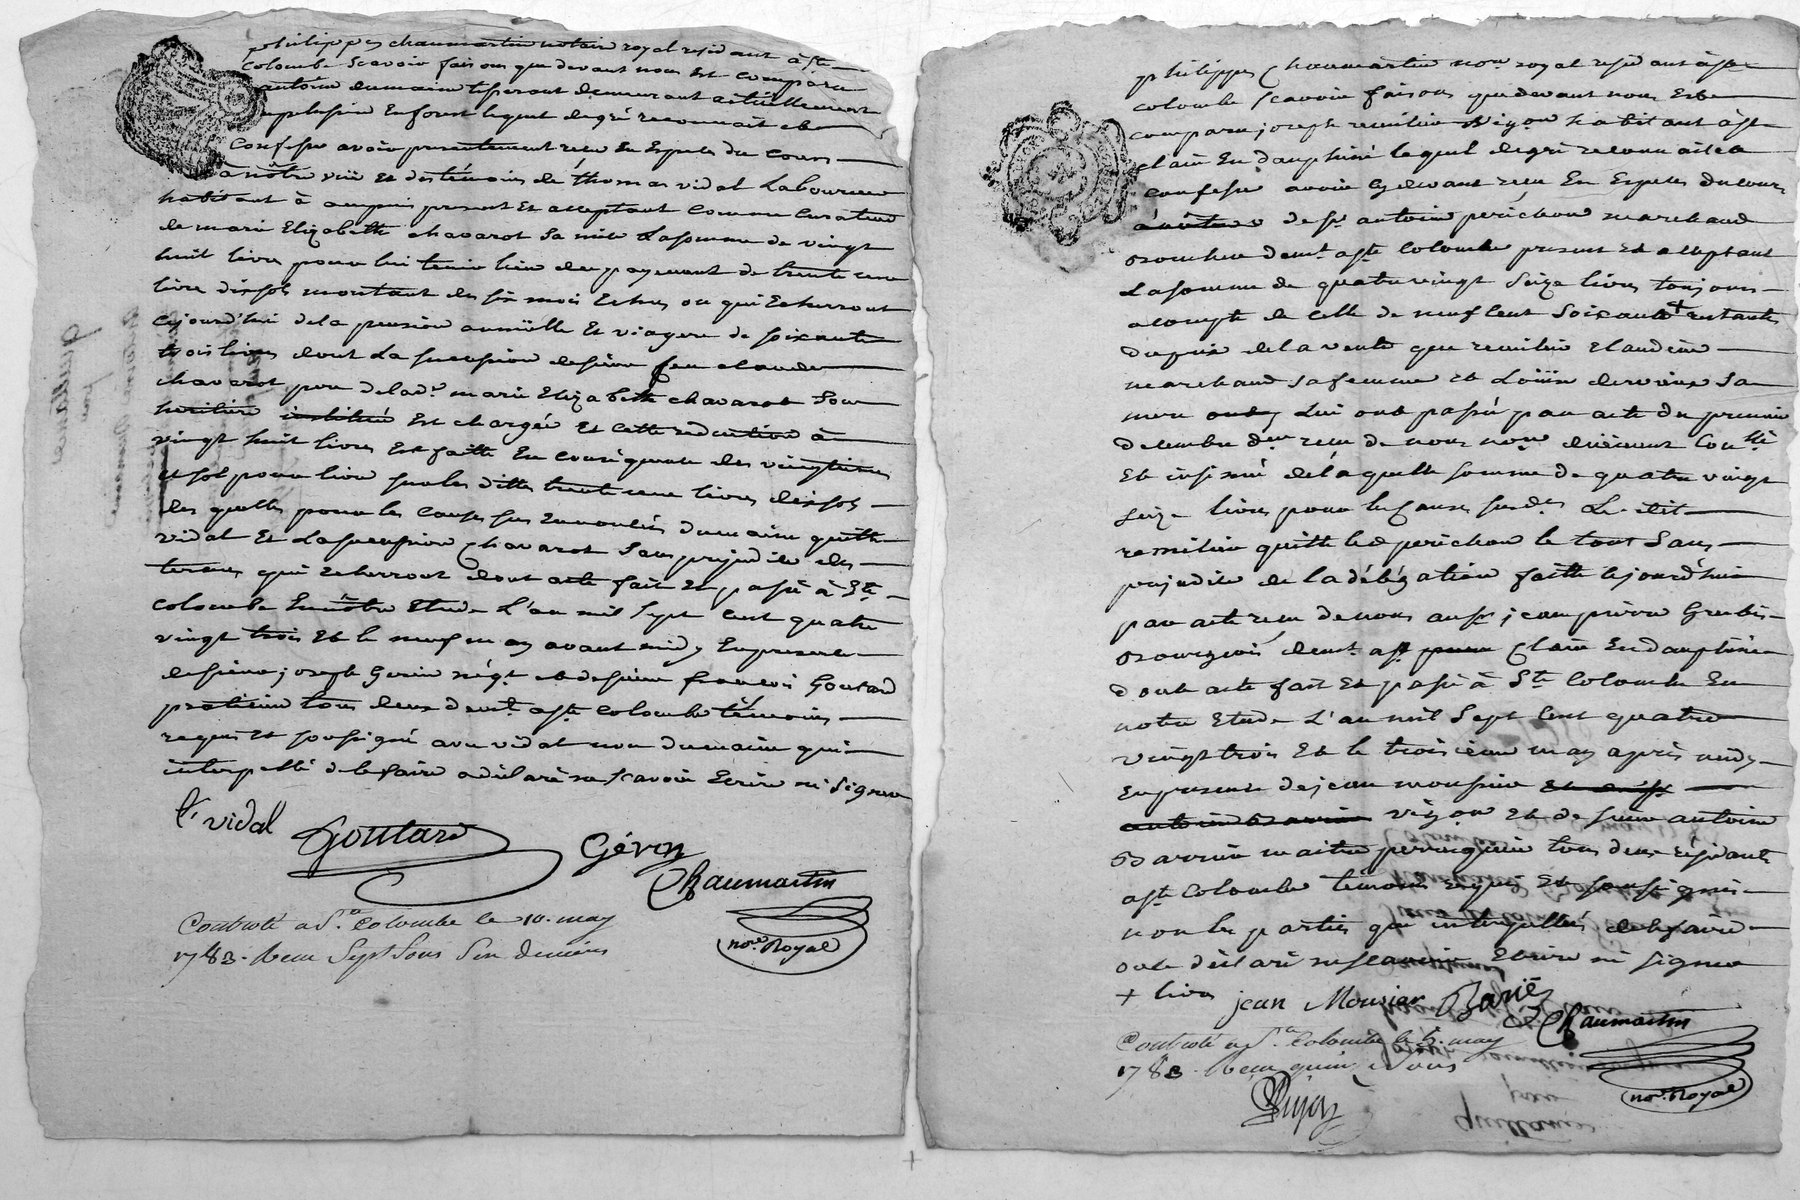 philippes chaumartin notaire royal residant à ste
colombe scavoir faisons que devant nous est comparu
antoine dumaine tisserant demeurant actuellement
a pelussin en forest lequel de gré reconnait et
confesse avoir presentement recu en especes du cours
a nôtre vüe et des témoins de thomas vidal laboureur
habitant à ampuis present et acceptant comme curateur
de marie Elizabeth chavarot sa niece la somme de vingt
huit livres pour lui tenir lieu de payement de trente une
livre dix sols montant des six mois echus ou qui echerront
cejourd'hui de la pension annüelle et viagere de soixante
trois livres dont la succession de sieur feu claude
chavarot pere de lad.e marie Elizabeth chavarot son
heritiere instituée est chargée et cette reduction à
vingt huit livres est faitte en consequence des vingtiemes
et sol pour livre sur les dittes trente une livres dix sols
des quelles pour les causes sus enoncées dumaine quitte
vidal et la succession chavarot sans prejudice des
termes qui echerront dont acte fait et passé à Ste
colombe en nôtre etude l'an mil sept cent quatre
vingt trois et le neuf may avant midy en presence
de sieur joseph Gerin négt et de sieur francois Goutard
praticien tous deux demt a ste colombe témoins
requis et soussignés avec vidal non dumaine qui
interpellé de le faire a déclaré ne scavoir ecrire ni signer
t. vidal Goutard Gérin
Chaumartin
not.e Royal
Controlé a Ste Colombe le 10. may
1783. Recu Sept Sous Six deniers
philippes Chaumartin nore royal residant à ste
colombe scavoir faisons que devant nous est
comparu joseph remilier vigon habitant à st
clair en dauphiné lequel de gré reconnait et
confesse avoir cy devant recu en especes du cours
à nôtre de sr antoine perichon marchand
demt a ste colombe present et acceptant
la somme de quatre vingt seize livres toujours
a compte de celle de neuf cent soixante + restante
du prix de la vente que remilier claudine
marchand sa femme et sa
mere lui ont passé par acte du premier
decembre der recu de nous nore
et insinué de laquelle somme de quatre vingt
seize livres pour les causes susd.es le dit
remilier quitte led perichon le tout sans
prejudice de la délégation faitte cejourd'hui
par acte recu de nous au sr jean pierre
bourgeois demt a st clair en dauphiné
dont acte fait et passé à Ste colombe en
notre etude l'an mil sept cent quatre
vingt trois et le troisieme may après midy
en presence de jean mousier
vigon et de sieur antoine
barrier maitre perruquier tous deux residants
a ste colombe temoins requis et soussignés
non les parties qui interpellées de le faire
ont déclaré ne scavoir ecrire ni signer
+ livres jean Mousier Barié
Chaumartin
not. Royal
Controlé a Ste Colombe le 5. may
1783. Recu quinze Sous